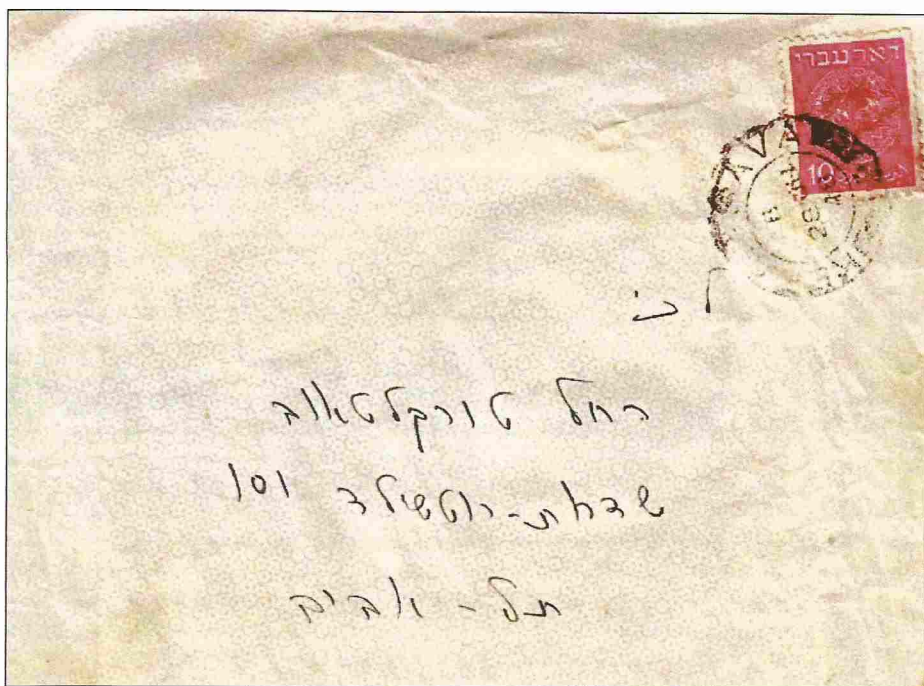 דאר עברי
10
SAVA
לכ'
רחל טורקלטאוב
שדרות-רוטשילד 101
תל-אביב